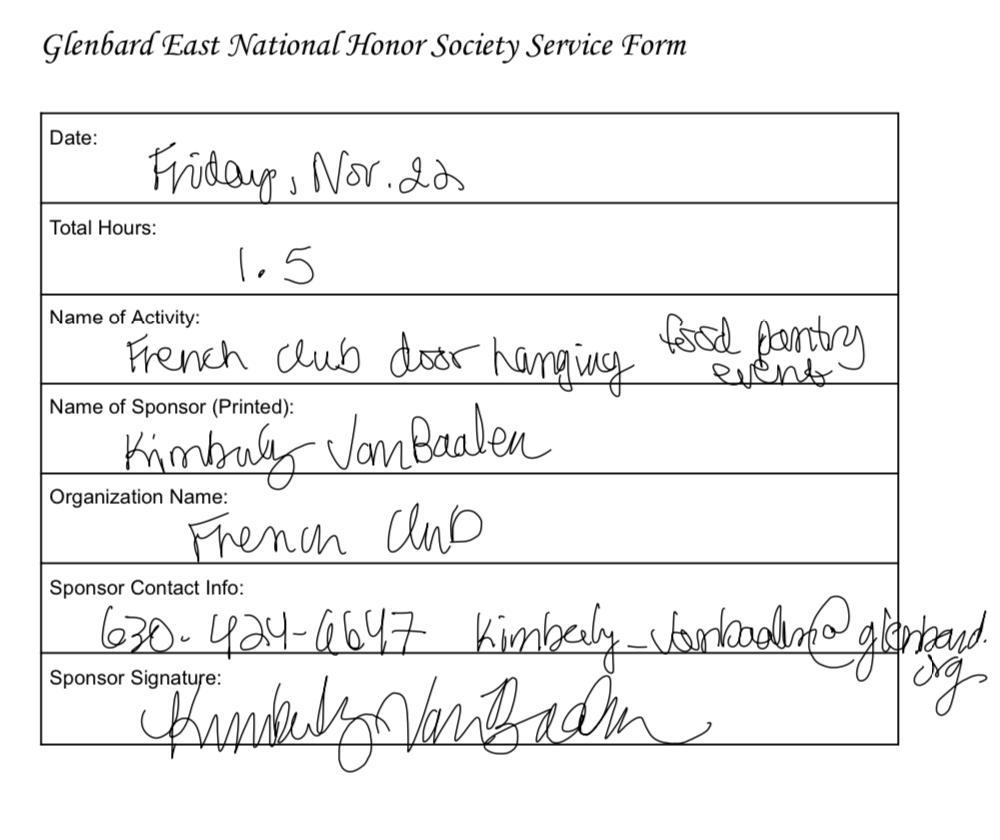 Glenbard East National Honor Society Service Form
Date:
Friday, Nov. 22
Total Hours:
1.5
Name of Activity:
French club door hanging food pantry
event
Name of Sponsor (Printed):
Kimberly VanBaalen
Organization Name:
French Club
Sponsor Contact Info:
630-424-6647 Kimberly_vanbaalen@glenbard.
org
Sponsor Signature:
Kimberly VanBaalen